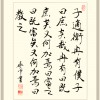 子適衛冉有僕子
曰庶矣哉冉有曰既
庶矣又何加焉曰富之
曰既富矣又何加焉曰
教之